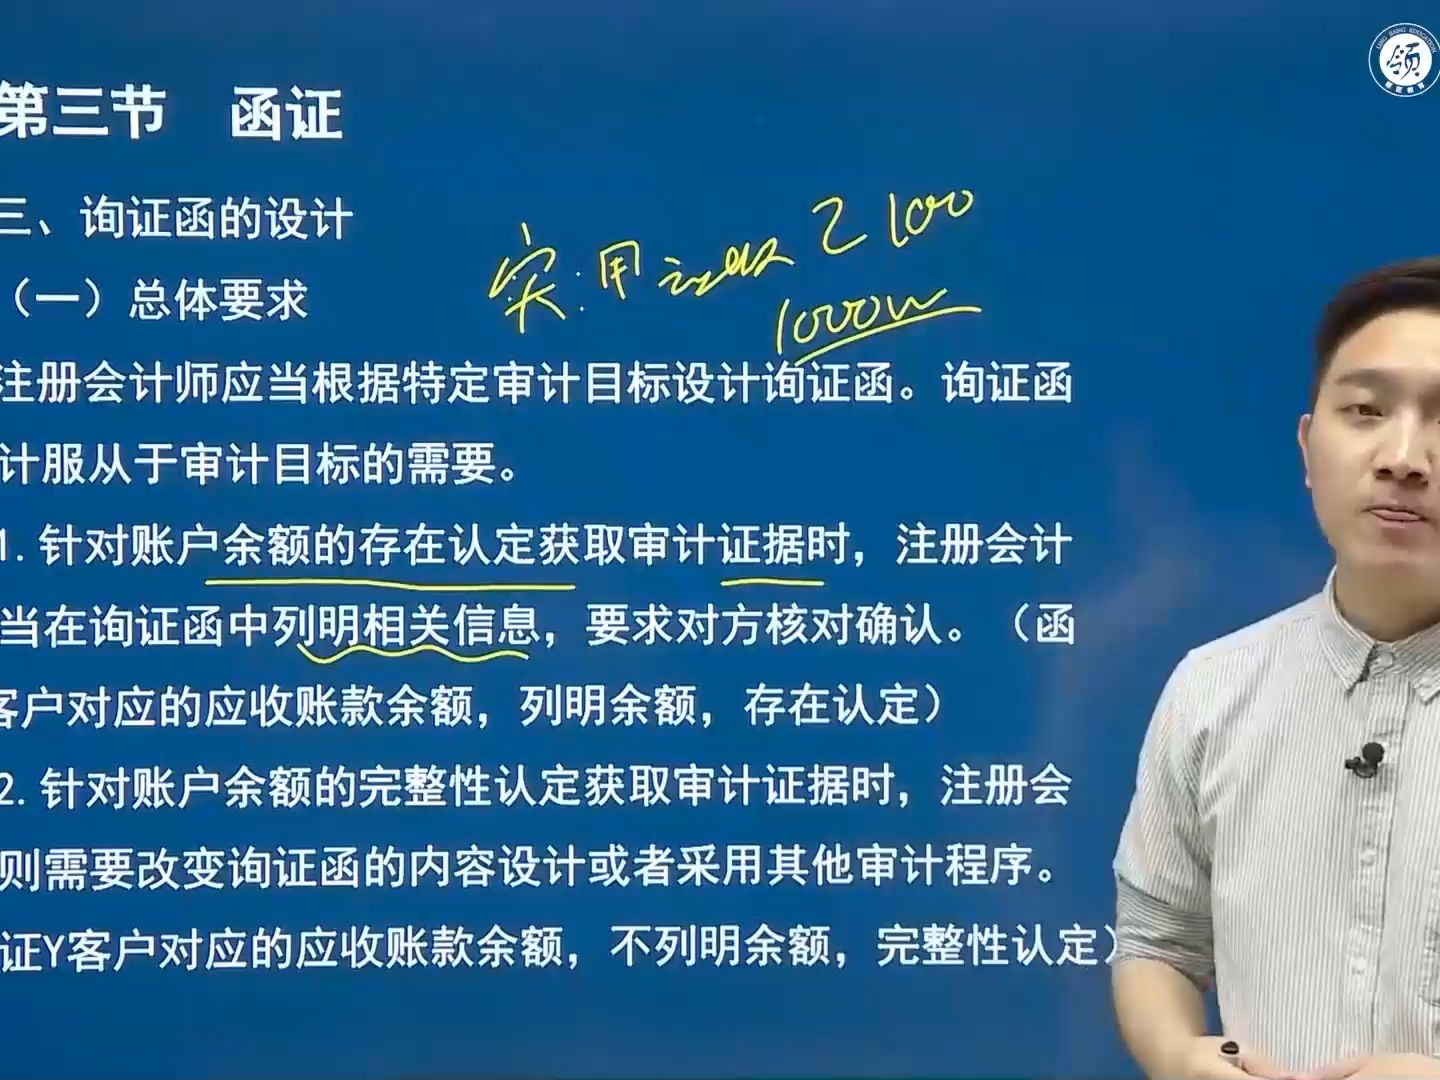 第三节 函证
三、询证函的设计
（一）总体要求
100
1000w
注册会计师应当根据特定审计目标设计询证函。询证函
计服从于审计目标的需要。
1.针对账户余额的存在认定获取审计证据时，注册会计
当在询证函中列明相关信息，要求对方核对确认。（函
客户对应的应收账款余额，列明余额，存在认定）
2.针对账户余额的完整性认定获取审计证据时，注册会
则需要改变询证函的内容设计或者采用其他审计程序。
证Y客户对应的应收账款余额，不列明余额，完整性认定）
领